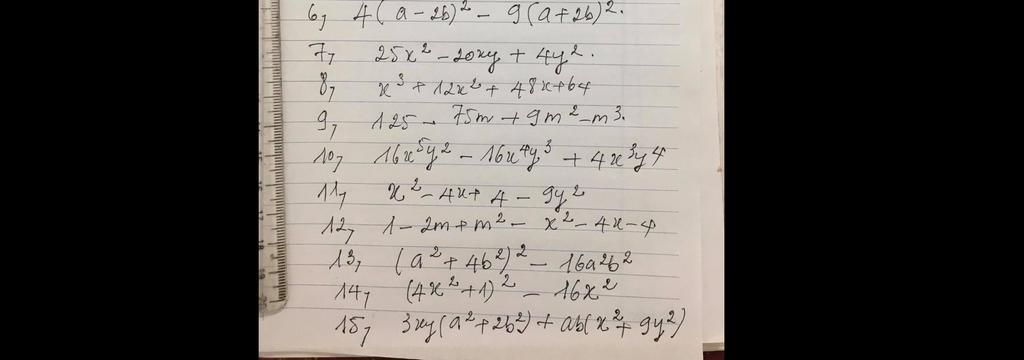 6, 4(a-2b)² - 9(a+2b)².
7, 25x² - 20xy + 4y².
8, x³ + 12x² + 48x + 64
9, 125 - 75m + 9m² - m³.
10, 16x⁵y² - 16x⁴y³ + 4x³y⁴
11, x² - 4x + 4 - 9y²
12, 1 - 2m + m² - x² - 4x - 4
13, (a² + 4b²)² - 16a²b²
14, (4x² + 1)² - 16x²
15, 3xy(a² + 2b²) + ab(x² + 9y²)